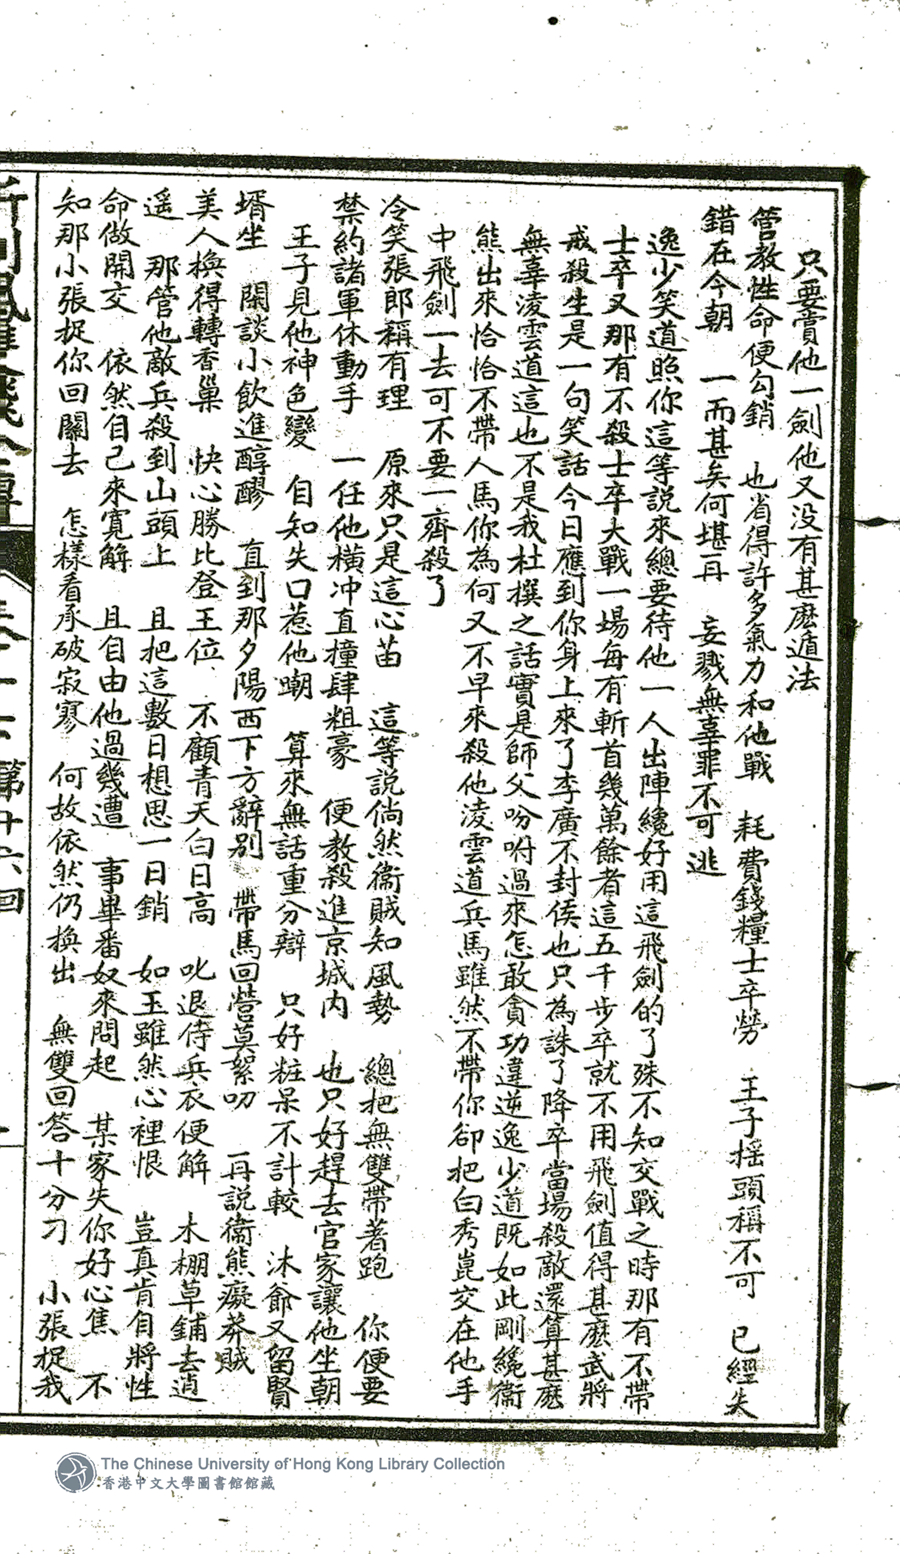 只要賣他一劍他又没有甚麽遁法
管教性命便勾銷　也省得許多氣力和他戰　耗費錢糧士卒勞　王子摇頭稱不可　已經失
錯在今朝　一而甚矣何堪再　妄戮無辜罪不可逃
逸少笑道照你這等說來總要待他一人出陣纔好用這飛劍的了殊不知交戰之時那有不帶
士卒又那有不殺士卒大戰一場每有斬首幾萬餘者這五千步卒就不用飛劍值得甚麽武將
戒殺生是一句笑話今日應到你身上來了李廣不封侯也只為誅了降卒當場殺敵還算甚麽
無辜淩雲道這也不是我杜撰之話實是師父吩咐過來怎敢貪功違逆逸少道既如此剛纔衞
熊出來恰恰不帶人馬你為何又不早來殺他淩雲道兵馬雖然不帶你卻把白秀崑交在他手
中飛劍一去可不要一齊殺了
冷笑張郎稱有理　原來只是這心苗　這等説倘然衞賊知風勢　總把無雙帶著跑　你便要
禁約諸軍休動手　一任他橫冲直撞肆粗豪　便教殺進京城内　也只好趕去官家讓他坐朝
王子見他神色變　自知失口惹他嘲　算來無話重分辯　只好粧呆不計較　沐爺又留賢
壻坐　閑談小飲進醇醪　直到那夕陽西下方辭别　帶馬回營莫絮叨　再説衞熊癡莽賊
美人換得轉香巢　快心勝比登王位　不顧青天白日高　叱退侍兵衣便解　木棚草鋪去逍
遥　那管他敵兵殺到山頭上　且把這數日想思一日銷　如玉雖然心裡恨　豈真肯自將性
命做開交　依然自己來寬解　且自由他過幾遭　事畢番奴來問起　某家失你好心焦　不
知那小張捉你回關去　怎樣看承破寂寥　何故依然仍換出　無雙回答十分刁　小張捉我
第廿六回
The Chinese University of Hong Kong Library Collection
香港中文大學圖書館館藏